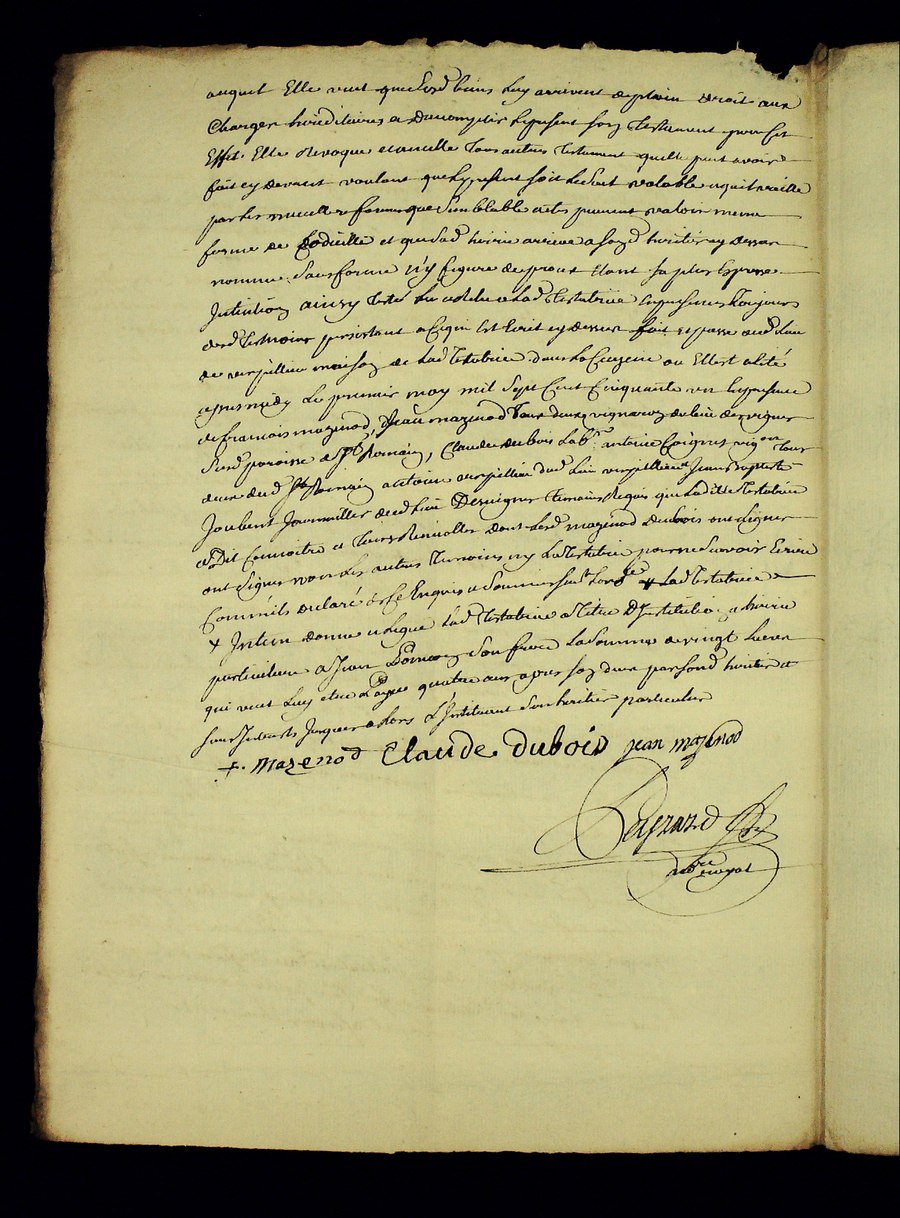 auquel Elle veut que sesd biens luy arrivent de plain droit aux
Charges hereditaires et den complir le present son testament pour cet
Effet. Elle Revoque et anculle tous autres testament quelle peut avoir
fait cy devant voulant que le present soit le seul valable et quil vaille
par les meillieures formes que semblable actes peuvent valoir meme
forme de Codicille et que sad hoirie arrive a sond heritier cy dessus
nommé sans forme n'y figure de proces étant sa plus Expresse
Intention ainsy testé leu et releu a lad testatrice En presence toujours
desd temoins persistant a ce qui est Ecrit cy dessus fait et passé aud lieu
de verpillieu maison de lad testatrice dans la Cuizene ou Elle est alité
apres midy le premier may mil sept Cent Cinquante un En presence
de francois mazenod, Jean mazenod tous deux vignerons du lieu des vignes
susd paroisse de St Romain, Claude dubois labr. antoine
dud St Romain antoine verpillieu dud lieu verpillieu et Jean Baptiste
Joubert Journaillier dud lieu Desvignes temoins Requis que ladite testatrice
a Dit Connoitre et dont lesd mazenod dubois ont signes
ont signes non les autres temoins ny la testatrice pour ne scavoir Ecrire
Comm'ils ont declaré de ce Enquis et sommés lad testatrice
+ Item donne et legue lad testatrice a titre d'Institution et hoirie
particuliere a Jean son frere la somme de vingt livres
qui veut luy etre Payée quatre ans apres son deces par sond heritier et
sans Interets jusques alors L'Instituant son heritier particulier
f. Mazenod Claude dubois jean mazenod
nore royal